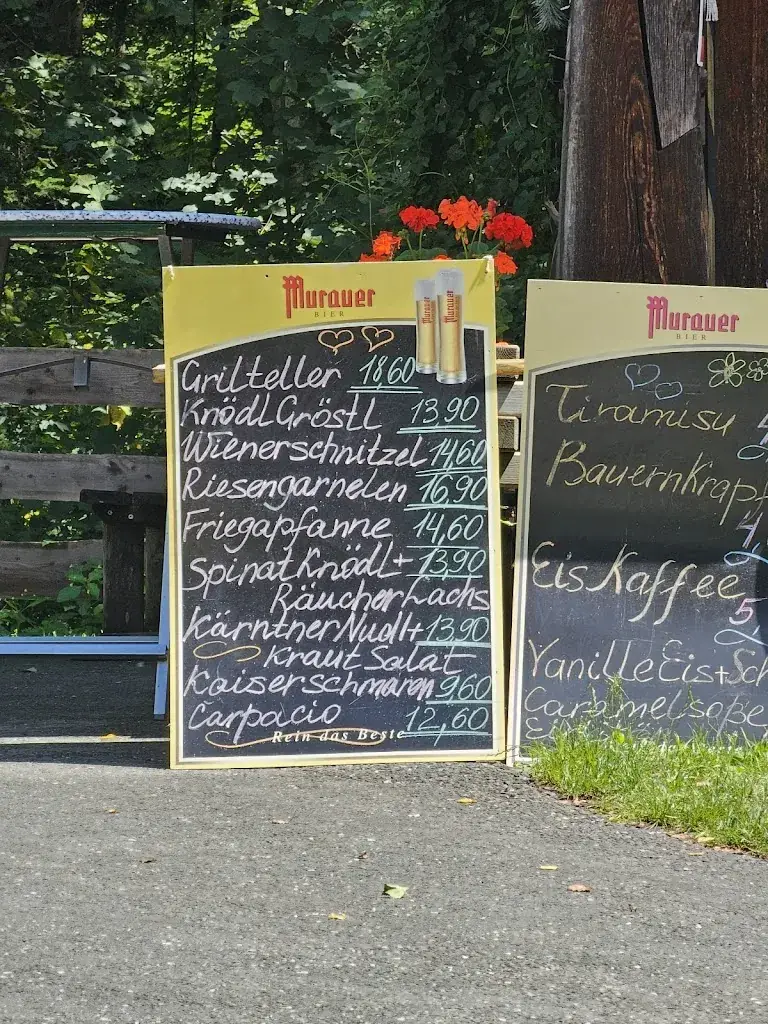 Murauer
BIER
Grilteller 18,60
KnödlGröstl 13,90
Wienerschnitzel 14,60
Riesengarnelen 16,90
Friegapfanne 14,60
SpinatKnödl+ 13,90
RäucherLachs
KärntnerNudl+ 13,90
Kraut Salat
Kaiserschmaren 9,60
Carpacio 12,60
Rein das Beste
Murauer
BIER
Tiramisu 4
BauernKrapf
4
EisKaffee
5
VanilleEis+Sch
Caramelsoße